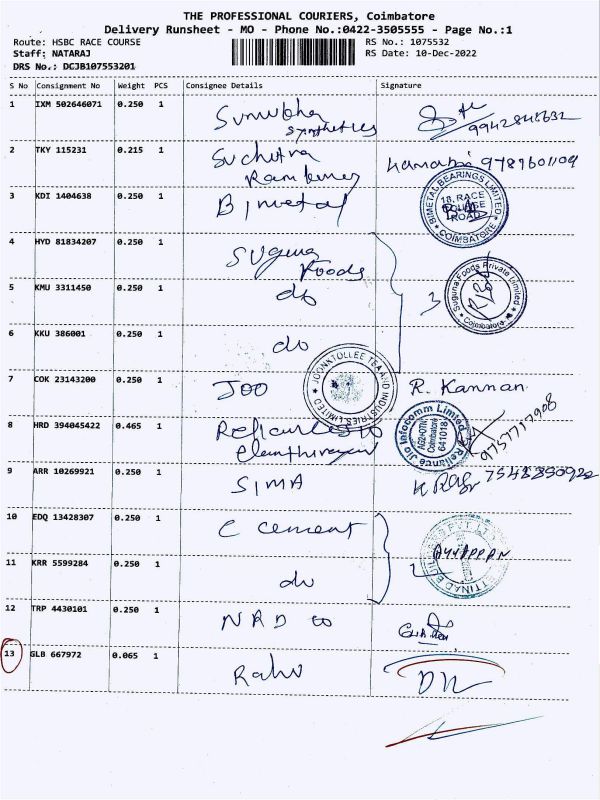 THE PROFESSIONAL COURIERS, Coimbatore
Delivery Runsheet - MO - Phone No.:0422-3505555 - Page No.:1
Route: HSBC RACE COURSE RS No.: 1075532
Staff: NATARAJ RS Date: 10-Dec-2022
DRS No.: DCJB107553201
S No Consignment No Weight PCS Consignee Details Signature
1 IXM 502646071 0.250 1
Synthetics
2 TKY 115231 0.215 1 Suchitra 9789601109
3 KDI 1404638 0.250 1 Bimetal
BIMETAL BEARINGS LIMITED
18, RACE
COURSE
ROAD
COIMBATORE
4 HYD 81834207 0.250 1 Suguna
Foods
5 KMU 3311450 0.250 1 do 3
Suguna Foods Private Limited
Coimbatore
6 KKU 386001 0.250 1 do
JOONKTOLLEE TEA AND INDUSTRIES LIMITED
7 COK 23143200 0.250 1 R. Kannan
8 HRD 394045422 0.465 1
Reliance Jio Infocomm Limited
Coimbatore
641018
9 ARR 10269921 0.250 1 SIMA
10 EDQ 13428307 0.250 1 C cement
11 KRR 5599284 0.250 1 do 2 AYYAPPAN
12 TRP 4430101 0.250 1
13 GLB 667972 0.065 1